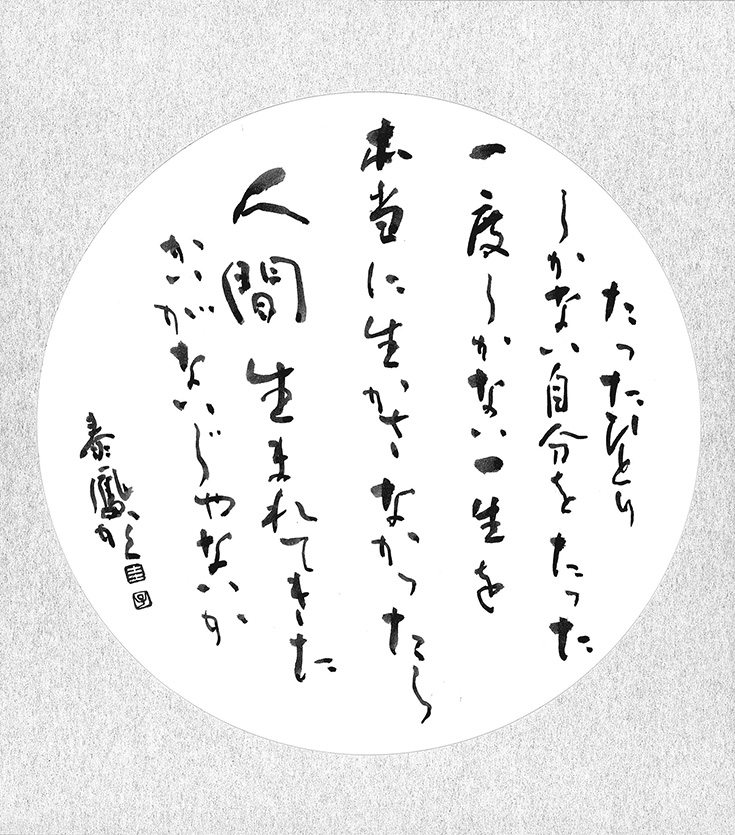 たったひとり
しかない自分をたった
一度しかない一生を
本当に生かさなかったら
人間生まれてきた
かいがないじゃないか
泰鳳